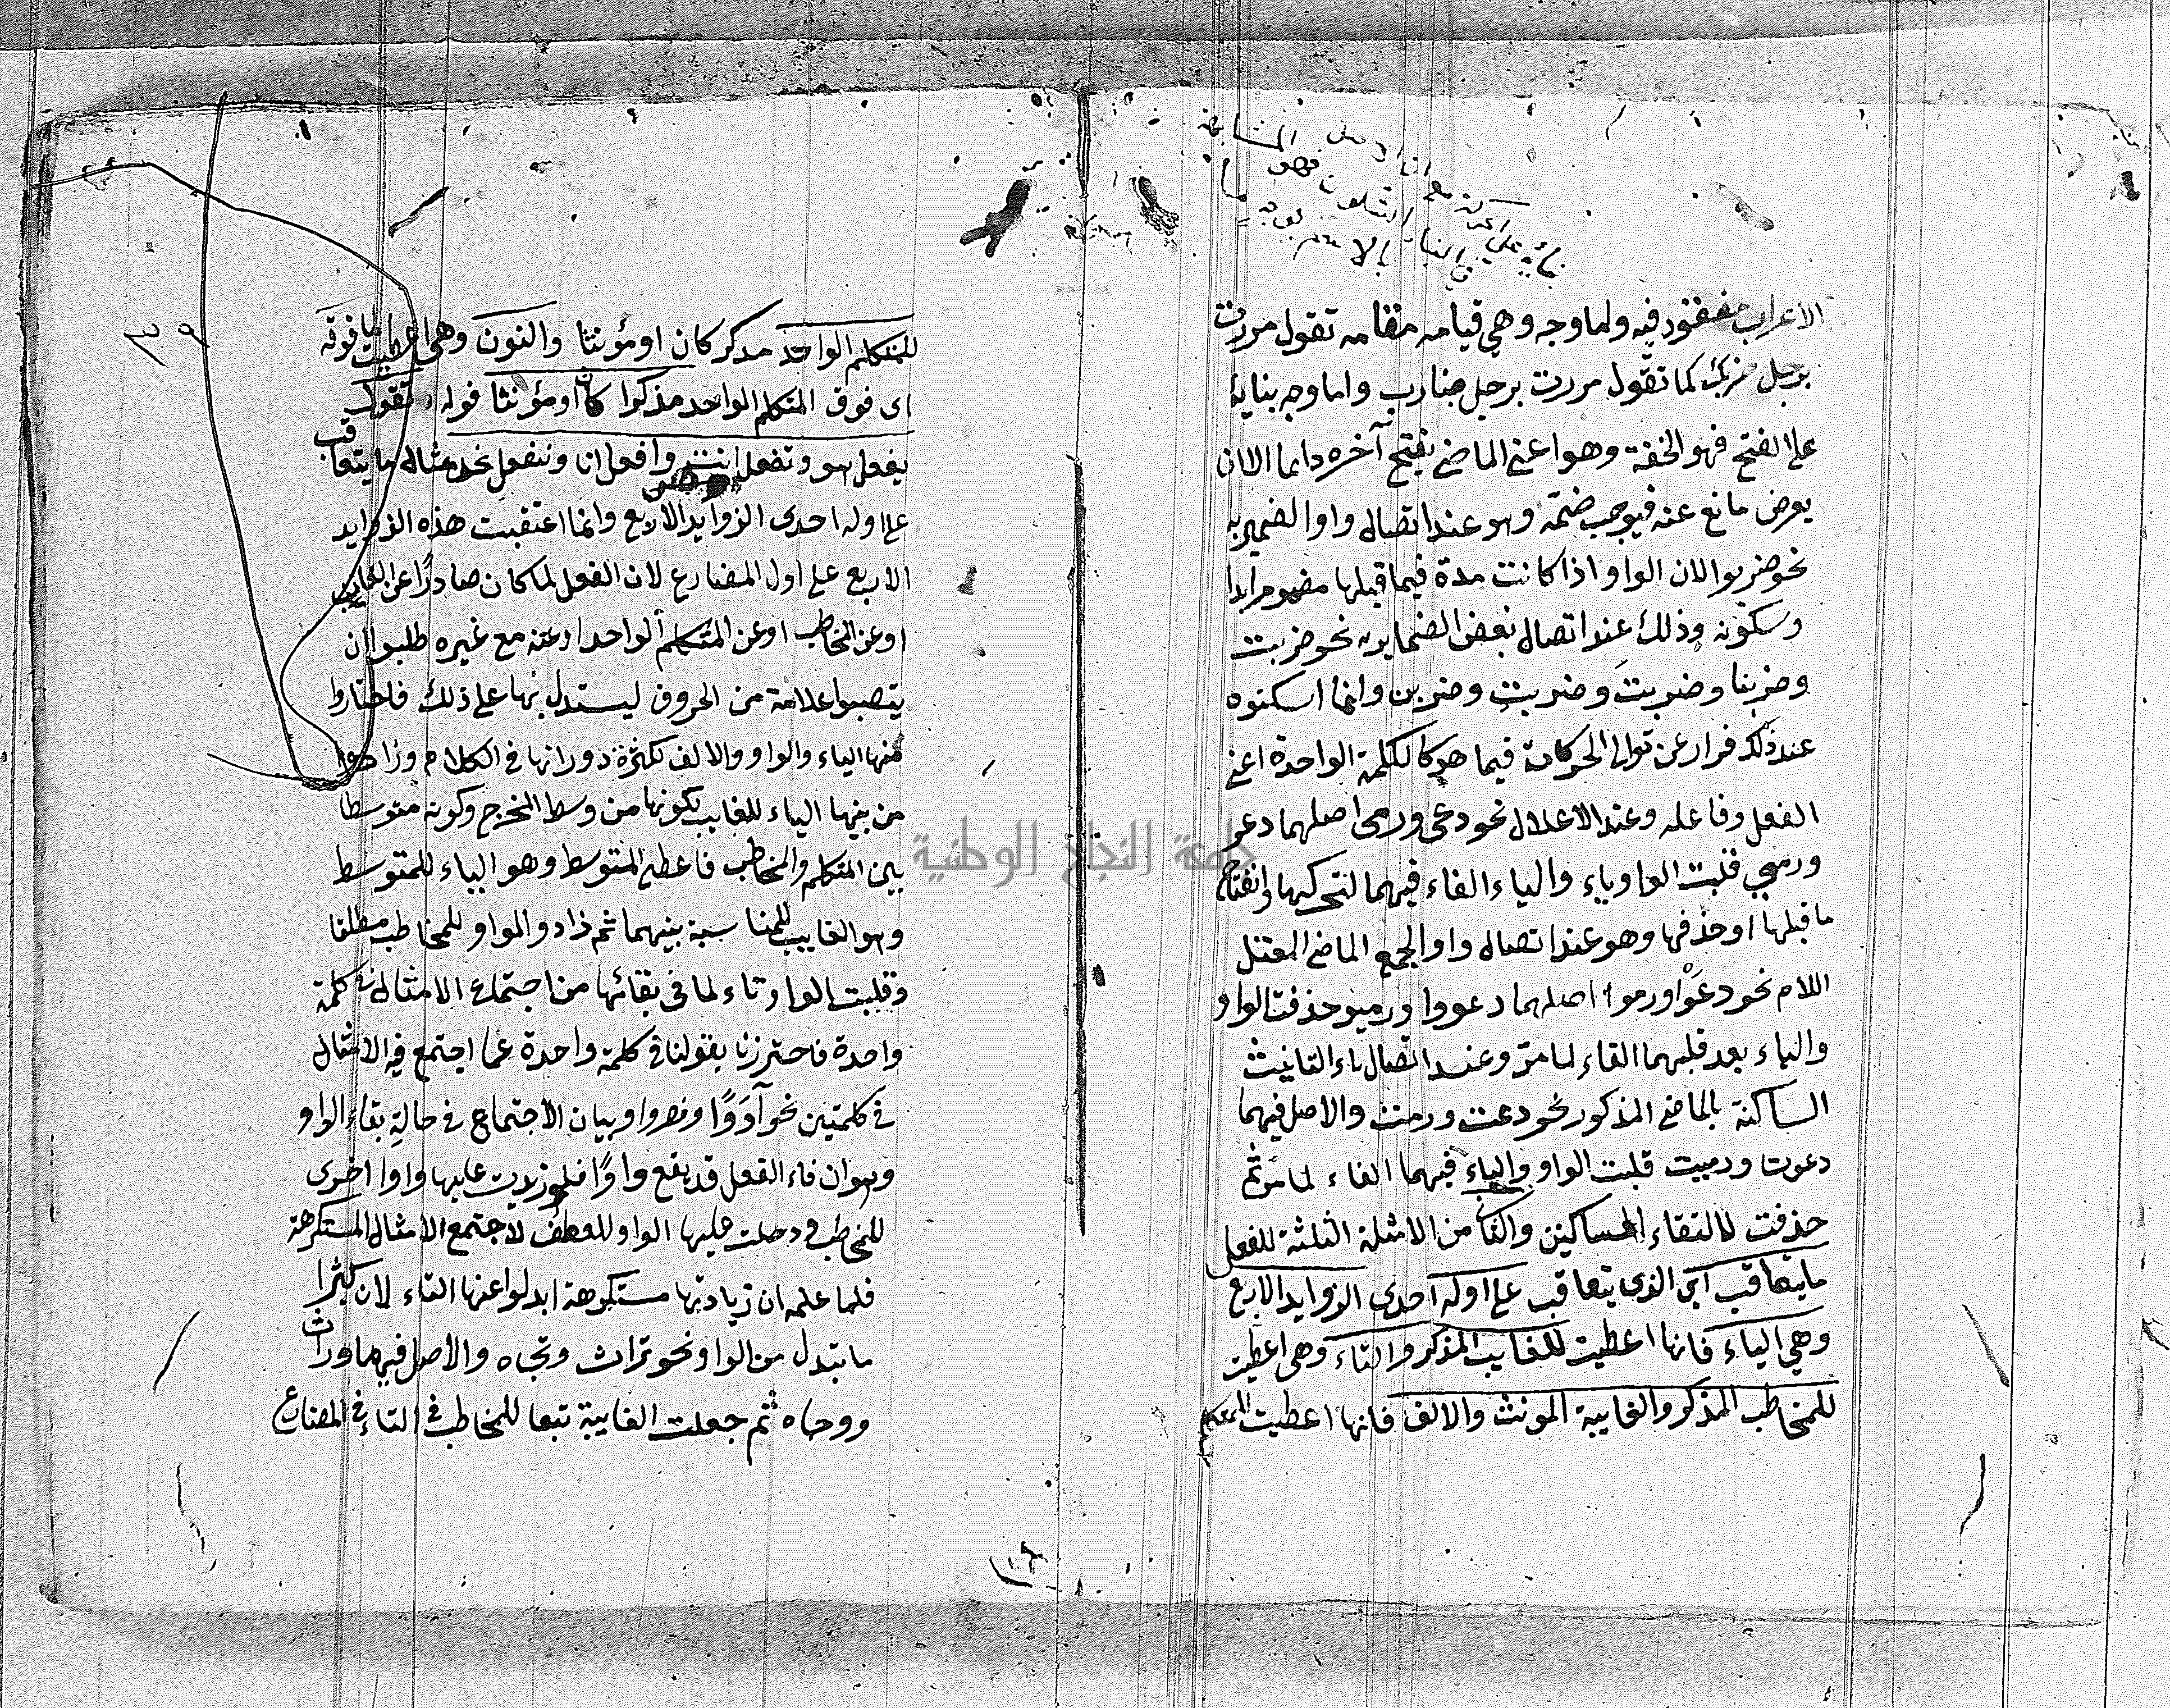 الاعراب مفقود فيه ولما وجه وهي قيامه مقامه تقول مررت
برجل ضربك كما تقول مررت برجل ضارب واما وجه بنائه
على الفتح فهو الخفة وهو اعني الماضي يفتح آخره دايما الا ان
يعرض مانع عنه فيوجب ضمّه وهو عند اتصاله واو الضمير به
نحو ضربوا لان الواو اذا كانت مدة فيما قبلها مضموم ابدا
وسكونه وذلك عند اتصاله بعض الضماير به نحو ضربت
وضربنا وضربتَ وضربتِ وضربن وانما اسكنوه
عند ذلك فرار عن توالى الحركات فيما هو كالكلمة الواحدة اعني
الفعل وفاعله وعند الاعلال نحو دعى ورمى اصلهما دعو
ورمي قلبت الواو ياء والياء الفاء فيهما لتحركها وانفتاح
ما قبلها او حذفها وهو عند اتصاله واو الجمع الماضي المعتل
اللام نحو دعَوْا ورموا اصلهما دعووا ورميو حذفت الواو
والياء بعد قلبهما الفاء لما مرّ وعند اتصال تاء التانيث
الساكنة بالماضي المذكور نحو دعت ورمت والاصل فيهما
دعوت ورميت قلبت الواو والياء فيهما الفاء لما مرّ ثم
حذفت لالتقاء الساكنين والثاني من الامثلة الثلثة للفعل
ما يتعاقب اي الذي يتعاقب على اوله احدى الزوايد الاربع
وهي الياء فانها اعطيت للغايب المذكر والتاء وهي اعطيت
للمخاطب المذكر والغايبة المونث والالف فانها اعطيت للمتكلم
للمتكلم الواحد مذكر كان او مؤنثا والنون وهي اعطيت ما فوقه
اى فوق المتكلم الواحد مذكرا كان او مؤنثا قوله تقول
يفعل هو وتفعل انت وافعل انا ونفعل نحن مثاله ما يتعاقب
على اوله احدى الزوايد الاربع وانما اعتقبت هذه الزوايد
الاربع على اول المضارع لان الفعل لما كان صادرًا عن الغايب
او عن المخاطب او عن المتكلم الواحد او عنه مع غيره طلبوا ان
ينصبوا علامة من الحروف ليستدل بها على ذلك فاختاروا
منها الياء والواو والالف لكثرة دورانها في الكلام وزادوا
من بينها الياء للغايب لكونها من وسط المخرج وكونه متوسطا
بين المتكلم والمخاطب فاعطى المتوسط وهو الياء للمتوسط
وهو الغايب للمناسبة بينهما ثم زادو الواو للمخاطب مطلقا
وقلبت الواو تاء لما في بقائها من اجتماع الامثال في كلمة
واحدة فاحترزنا بقولنا في كلمة واحدة عما اجتمع فيه الامثال
في كلمتين نحو آدَوًا ونصروا وبيان الاجتماع في حالةِ بقاء الواو
وهو ان فاء الفعل قد يقع واوًا فلو زيدت عليها واوا اخرى
للمخاطب ودخلت عليها الواو للعطف لاجتمع الامثال المستكرهة
فلما علم ان زيادتها مستكرهة ابدلوا عنها التاء لان كثيرا
ما يتبدل من الواو نحو تراث وتجاه والاصل فيهما وراث
ووجاه ثم جعلت الغايبة تبعا للمخاطب في التاء في المضارع
جامعة النجاح الوطنية